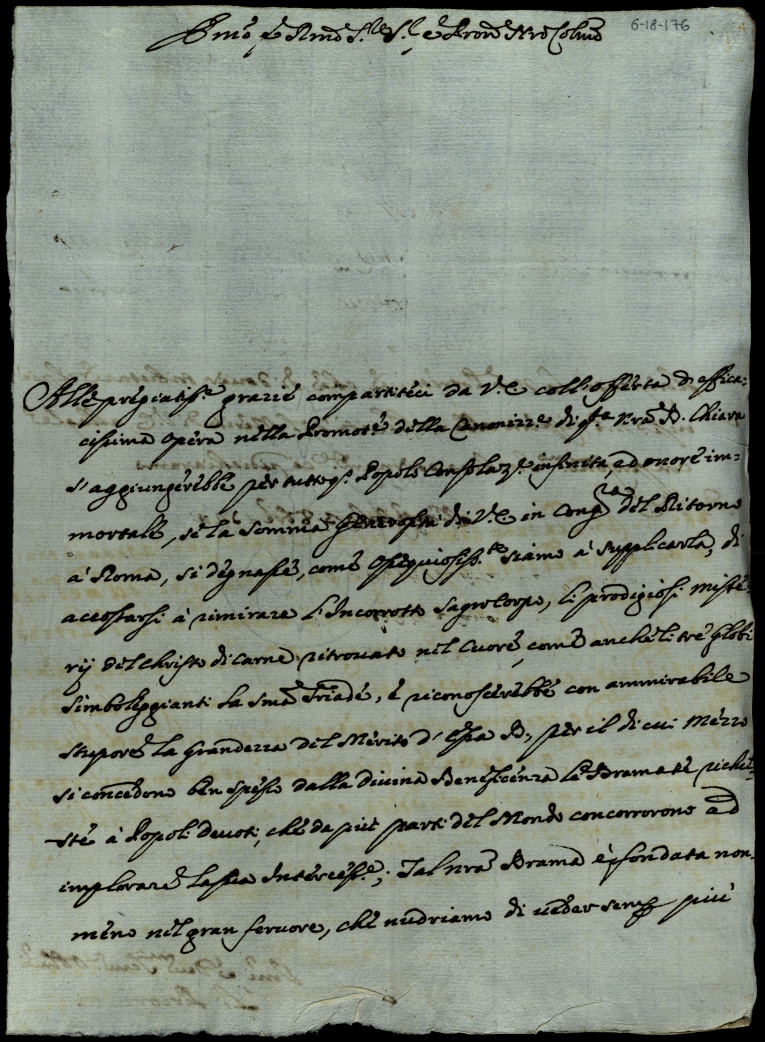 6-18-176
Emo e Rmo S.re S.r e Pron Nro Colmo
Alle pregiatiss.e grazie compartiteci da V.E. coll'offerta d'effica=
cissima opera nella Promot.e della Canonizz.e di q.ta Nrã B. Chiara
s'aggiungerebbe per tutto q.o Popolo Consolaz.e infinita, ad onore im=
mortale, se la somma Generosità di V.E. in Cong.ra del Ritorno
à Roma, si degnasse, come Ossequiosiss.te siamo à supplicarla, di
accostarsi à rimirare L'Incorrotto Sagro Corpo, li prodigiosi miste=
rij del Christo di carne ritrovato nel Cuore, come anche li tré Globi
simboleggianti la Smã Triade, e riconoscerebbe con ammirabile
stupore la Grandezza del Merito d'essa B., per il di cui mezzo
si concedono ben spesso dalla divina Beneficenza le Bramate richie=
ste à Popoli devoti, che da più parti del Mondo concorrono ad
implorare la sua Intercess.e; Tal nrã Brama è fondata non
meno nel gran fervore, che nudriamo di veder semp più